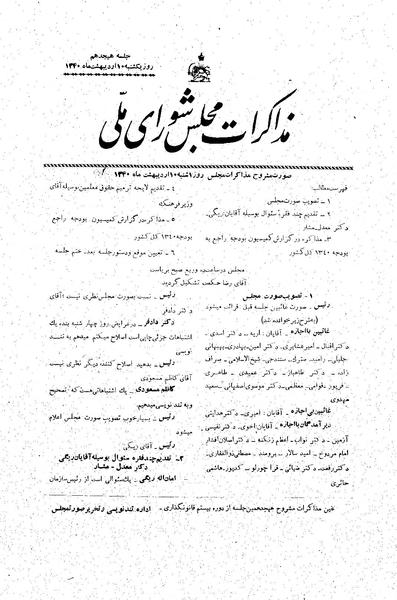 جلسه هیجدهم
روز یکشنبه ۱۰ اردیبهشت ماه ۱۳۴۰
مذاکرات مجلس شورای ملی
صورت مشروح مذاکرات مجلس روز ۱شنبه ۱۰ اردیبهشت ماه ۱۳۴۰
فهرست مطالب:
۱ - تصویب صورت مجلس
۲ - تقدیم چند فقره سئوال بوسیله آقایان ریگی.
دکتر معدل. مشار
۳ - مذاکره در گزارش کمیسیون بودجه راجع به
بودجه ۱۳۴۰ کل کشور
۴ - تقدیم لایحه ترمیم حقوق معلمین بوسیله آقای
وزیر فرهنگ
۵ - مذاکره در گزارش کمیسیون بودجه راجع
بودجه ۱۳۴۰ کل کشور
۶ - تعیین موقع و دستور جلسه بعد. ختم جلسه
مجلس در ساعت ده و ربع صبح بریاست
آقای رضا حکمت تشکیل گردید
۱ - تصویب صورت مجلس
رئیس - صورت غائبین جلسه قبل قرائت میشود
(بشرح زیر خوانده شد)
غائبین با اجازه - آقایان: اریه - دکتر اسدی -
دکتر اقبال - امیرعشایری - دکتر امین - بهادری - بهبهانی
جلیلی - رامبد - مترک - سنندجی - شیخ الاسلامی - صراف
زاده - دکتر طاهباز - دکتر عمیدی - طاهری
فریور - قوامی - معظمی - دکتر موسوی اصفهانی - سعید
مهدوی
غائبین بی اجازه - آقایان: امیری - دکتر هدایتی
دیر آمدگان با اجازه - آقایان: اخوی - دکتر نفیسی
آژمین - دکتر نواب - اعظم زنگنه - دکتر اسلان افشار
امام مردوخ - امید سالار - برومند - مصطفی ذوالفقاری
دکتر رفعت - دکتر ضیائی - قراچورلو - کدیور - هاشمی
حائری
رئیس - نسبت بصورت مجلس نظری نیست؛ آقای
دکتر دادفر
دکتر دادفر - در عرایض روز چهار شنبه بنده یک
اشتباهات جزئی چاپی است اصلاح میکنم میدهم به تند
نویسی
رئیس - بدهید اصلاح کنند، دیگر نظری نیست
آقای کاظم مسعودی
کاظم مسعودی - یک اشتباهاتی هست که تصحیح
و به تند نویسی میدهیم.
رئیس - بسیار خوب تصویب صورت مجلس اعلام
میشود
رئیس - آقای ریگی
۲ - تقدیم چند فقره سئوال بوسیله آقایان ریگی
دکتر معدل - مشار
امان اله ریگی - یک سئوالی است از رئیس سازمان
عین مذاکرات مشروح هیجدهمین جلسه از دوره بیستم قانونگذاری
اداره تند نویسی و تحریر صورتمجلس